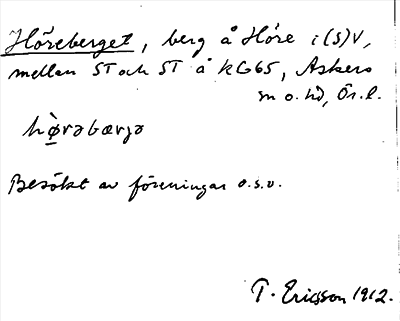 Höreberget, berg å Höre i (S)V,
mellan ST och ST å kG65, Askers
sn o. hd, Ör. l.
hɷ̀rəbærjə
Besökt av föreningar o.s.v.
T. Ericsson 1912.